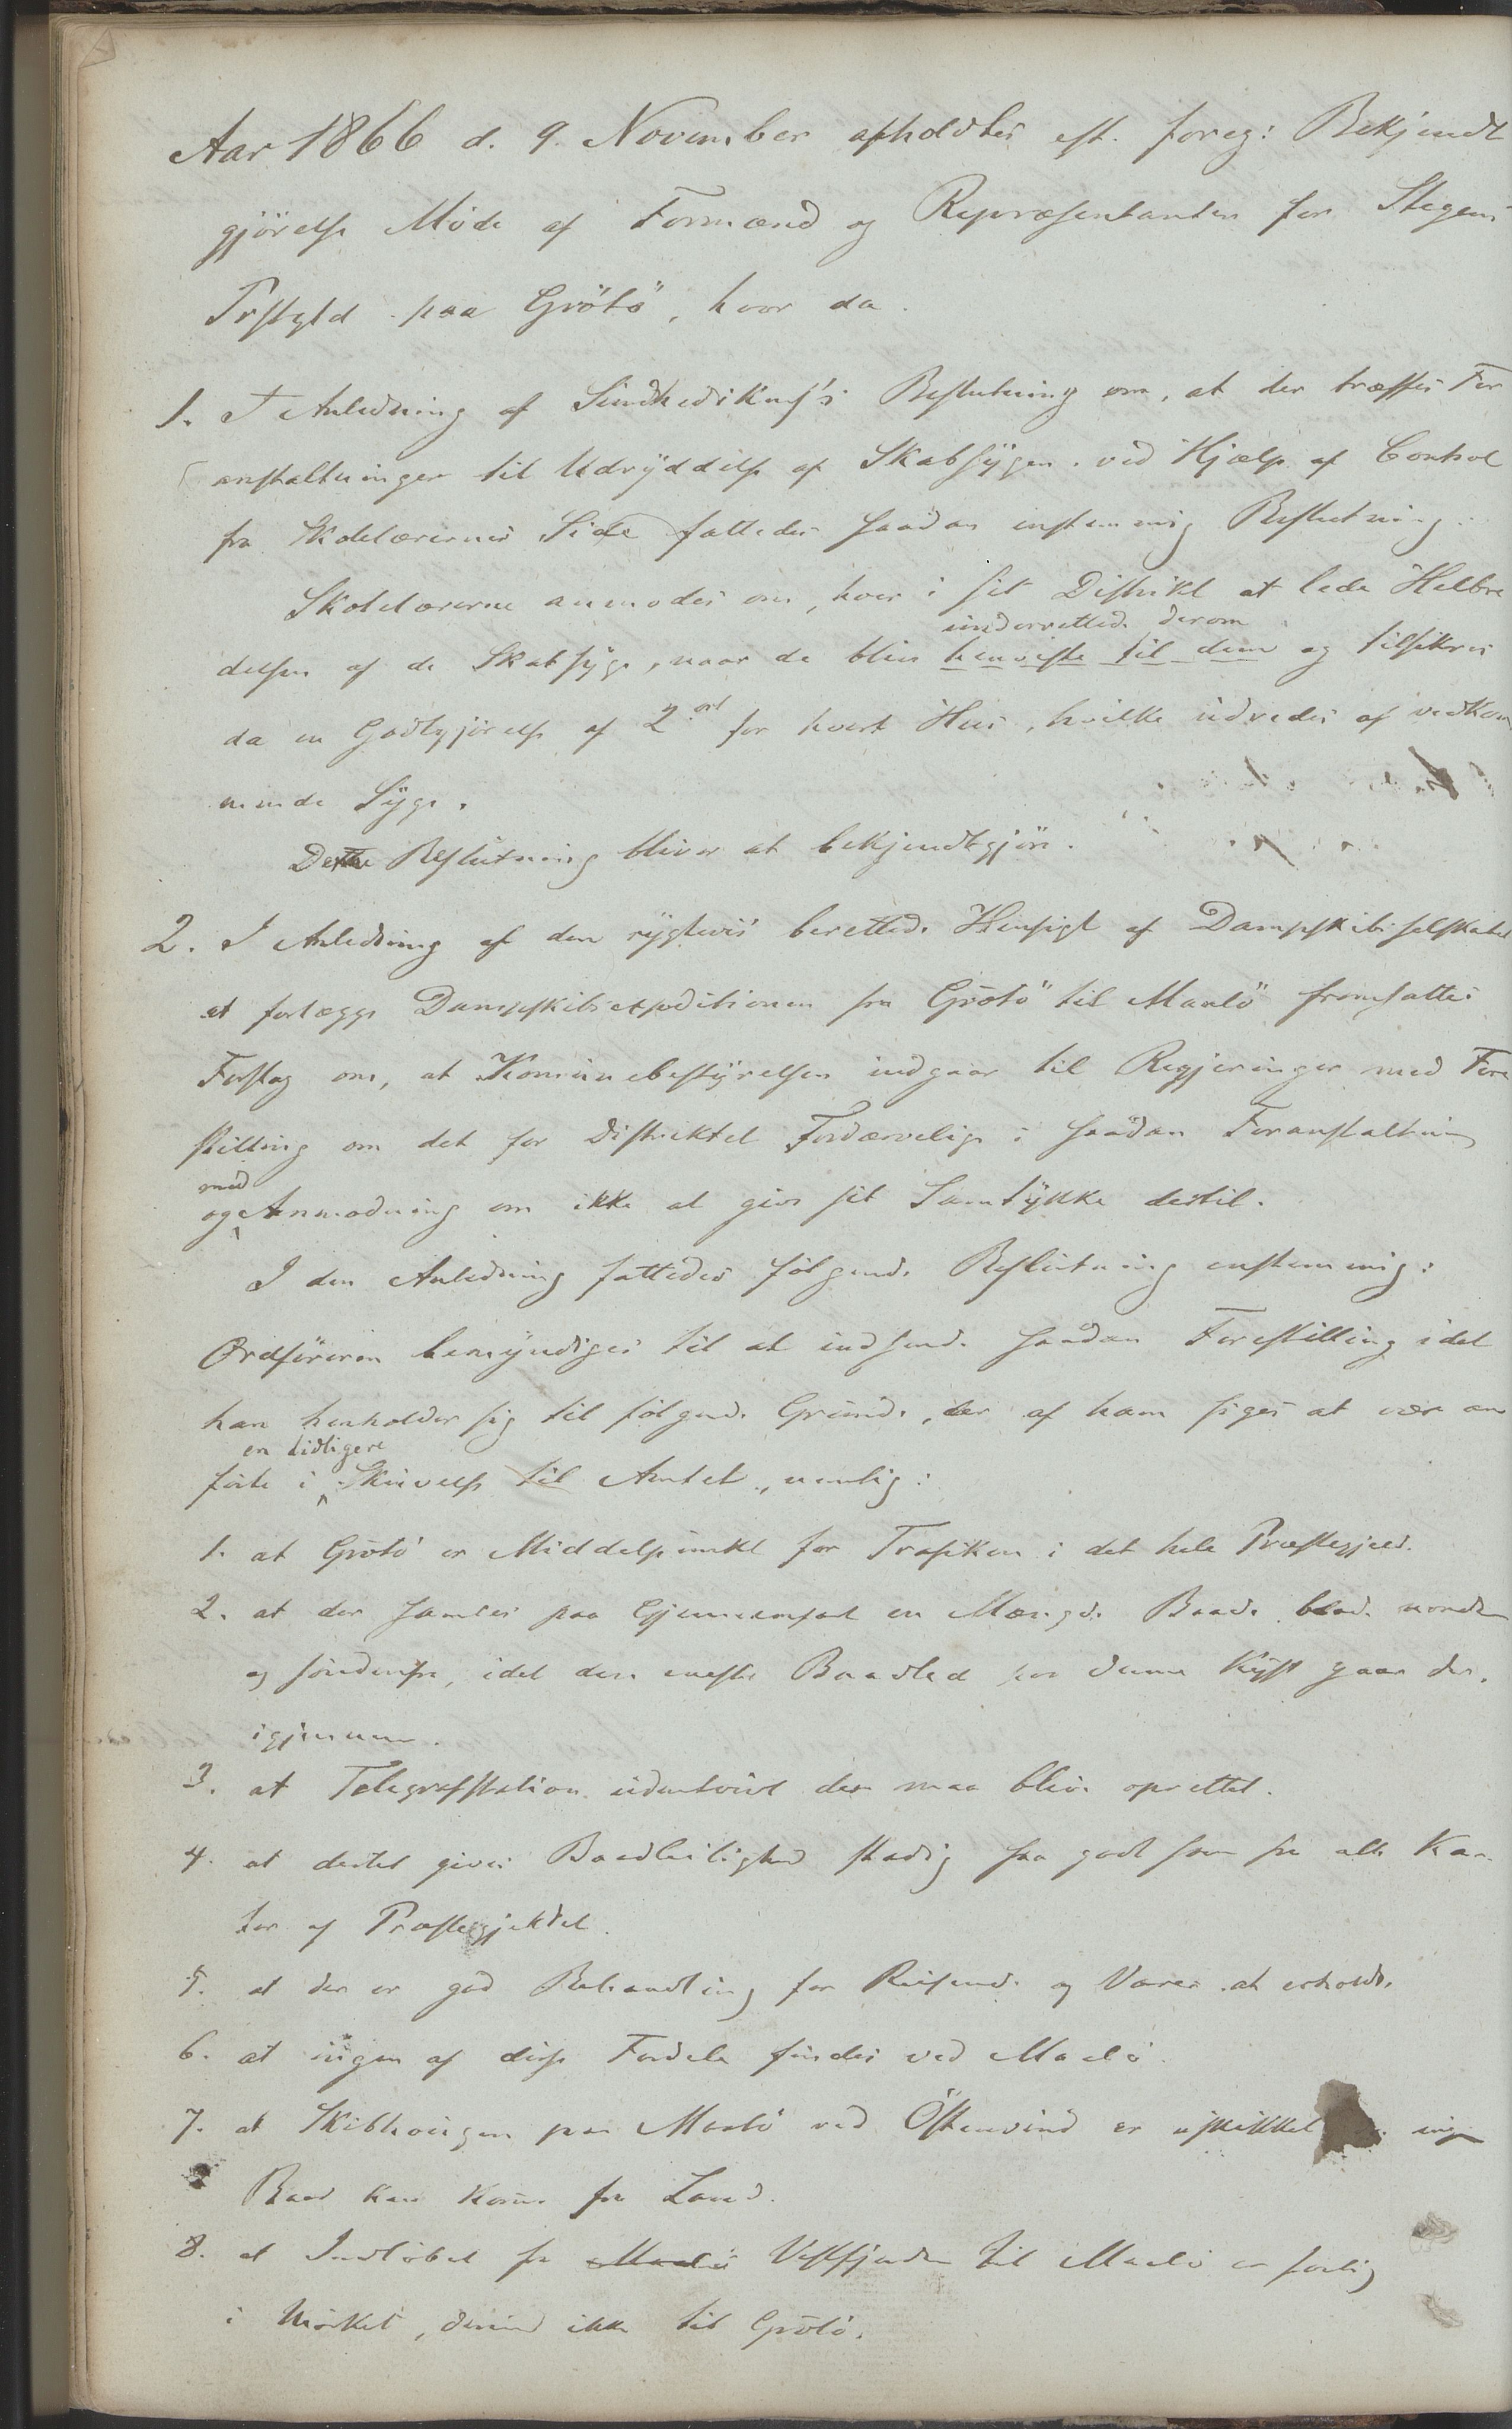 Aar 1866 d. 9. November afholdtes eft. foreg: Bekjendt
gjörelse Möde af Formænd og Repræsentanter for Stegens
Prstgld paa Grötö, hvor da
1. I Anledning af Sundhedskms's Beslutning om, at der træffes For
anstaltninger til Udryddelse af Skabsygen ved Hjælp af Control
fra Skolelærernes Side fattedes saadan enstemmig Beslutning:
Skolelærerne anmodes om, hver i sit Distrikt at lede Helbre
underrettede derom
delsen af de Skabsyge, naar de blive henviste til dem og tilsikres
da en Godtgjörelse af 2 ort for hvert Hus, hvilke udredes af vedkom
mende Syge.
Dette Beslutning bliver at bekjendtgjöre.
2. I Anledning af den rygtevis berettede Hensigt af Dampskibsselskabet
at forlægge Dampskibsexpeditionen fra Grötö til Maalö fremsattes
Forslag om, at Kommunebestyrelsen indgaar til Regjeringen med Fore
stilling om det for Distriktet Fordærvelige i saadan Foranstaltning
med
og Anmodning om ikke at give sit Samtykke dertil.
I den Anledning fattedes fölgende Beslutning enstemmig:
Ordföreren bemyndiges til at indsende saadan Forestilling idet
han henholder sig til fölgende Grunde, der af ham siges at være an
en tidligere
förte i Skrivelse til Amtet, nemlig:
1. at Grötö er Middelpunkt for Trafiken i det hele Præstegjeld.
2. at der samles paa Gjennemfart en Mængde Baade baade norden
og söndenfra, idet den eneste Baadled paa denne Kyst gaar der
igjennem.
3. at Telegrafstation udentvivl der maa blive oprettet.
4. at dertil gives Baadleilighed stadig saa godt som fra alle Kan
ter af Præstegjeldet.
5. at der er god Behandling for Reisende og Varer at erholde
6. at ingen af disse Fordele findes ved Maalö.
7. at Skibshavnen paa Maalö ved Östenvind er uskikket ingen
Baad kan komme fra Land.
8. at Indlöbet fra Maalö Vestfjorden til Maalö er farlig
i Mörket, derimod ikke til Grötö.